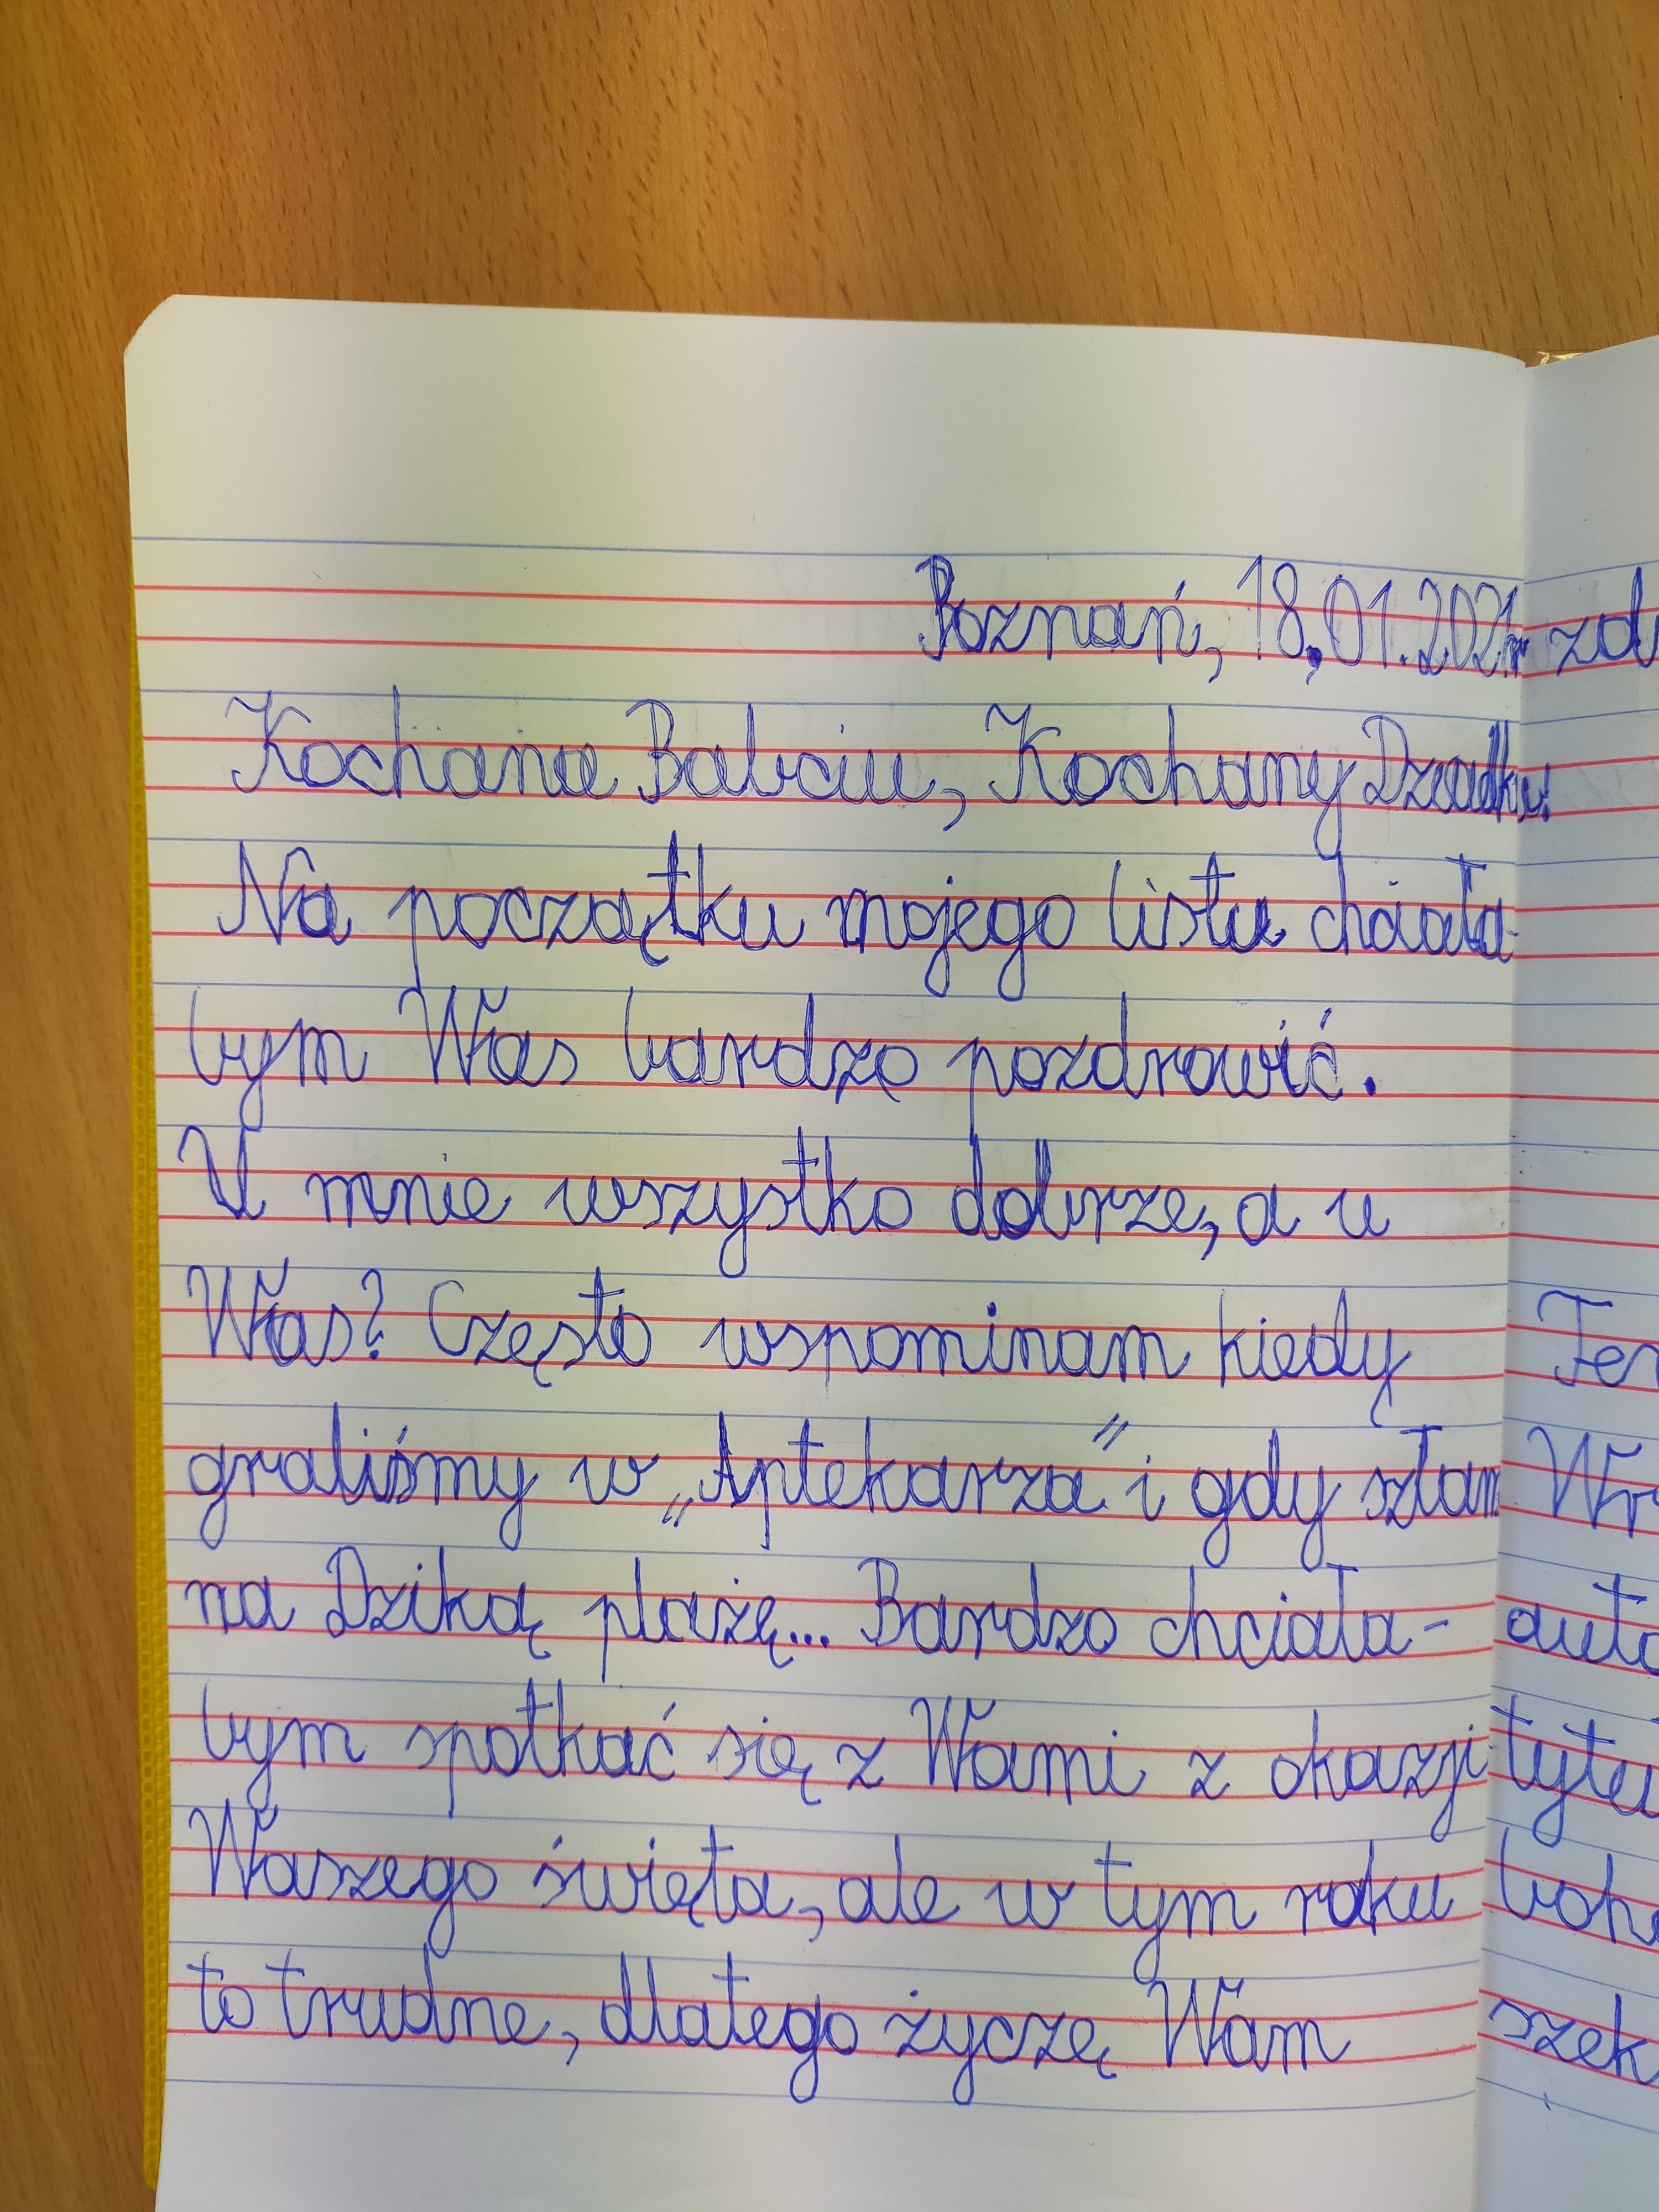 Poznań, 18.01.2021r
Kochana Babciu, Kochany Dziadku!
Na początku mojego listu chciała-
bym Was bardzo pozdrowić.
U mnie wszystko dobrze, a u
Was? Często wspominam kiedy
graliśmy w „Aptekarza” i gdy szłam
na Dziką plażę... Bardzo chciała-
bym spotkać się z Wami z okazji
Waszego święta, ale w tym roku
to trudne, dlatego życzę Wam